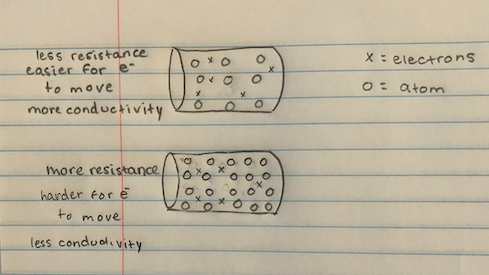 less resistance
easier for e⁻
to move
more conductivity
x = electrons
O = atom
more resistance
harder for e⁻
to move
less conductivity